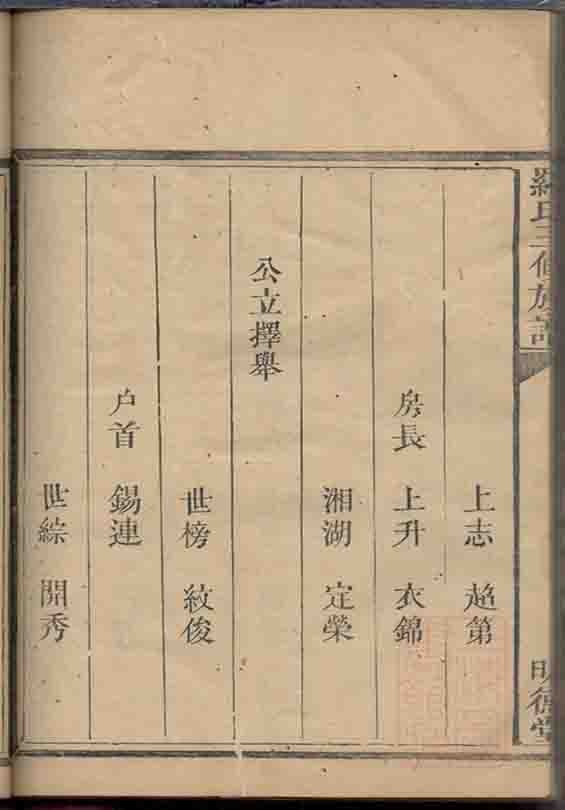 羅氏三修族譜
明德堂
上志 超第
房長 上升 衣錦
湘湖 定榮
公立擇舉
世榜 紋俊
户首 錫連
世綜 開秀